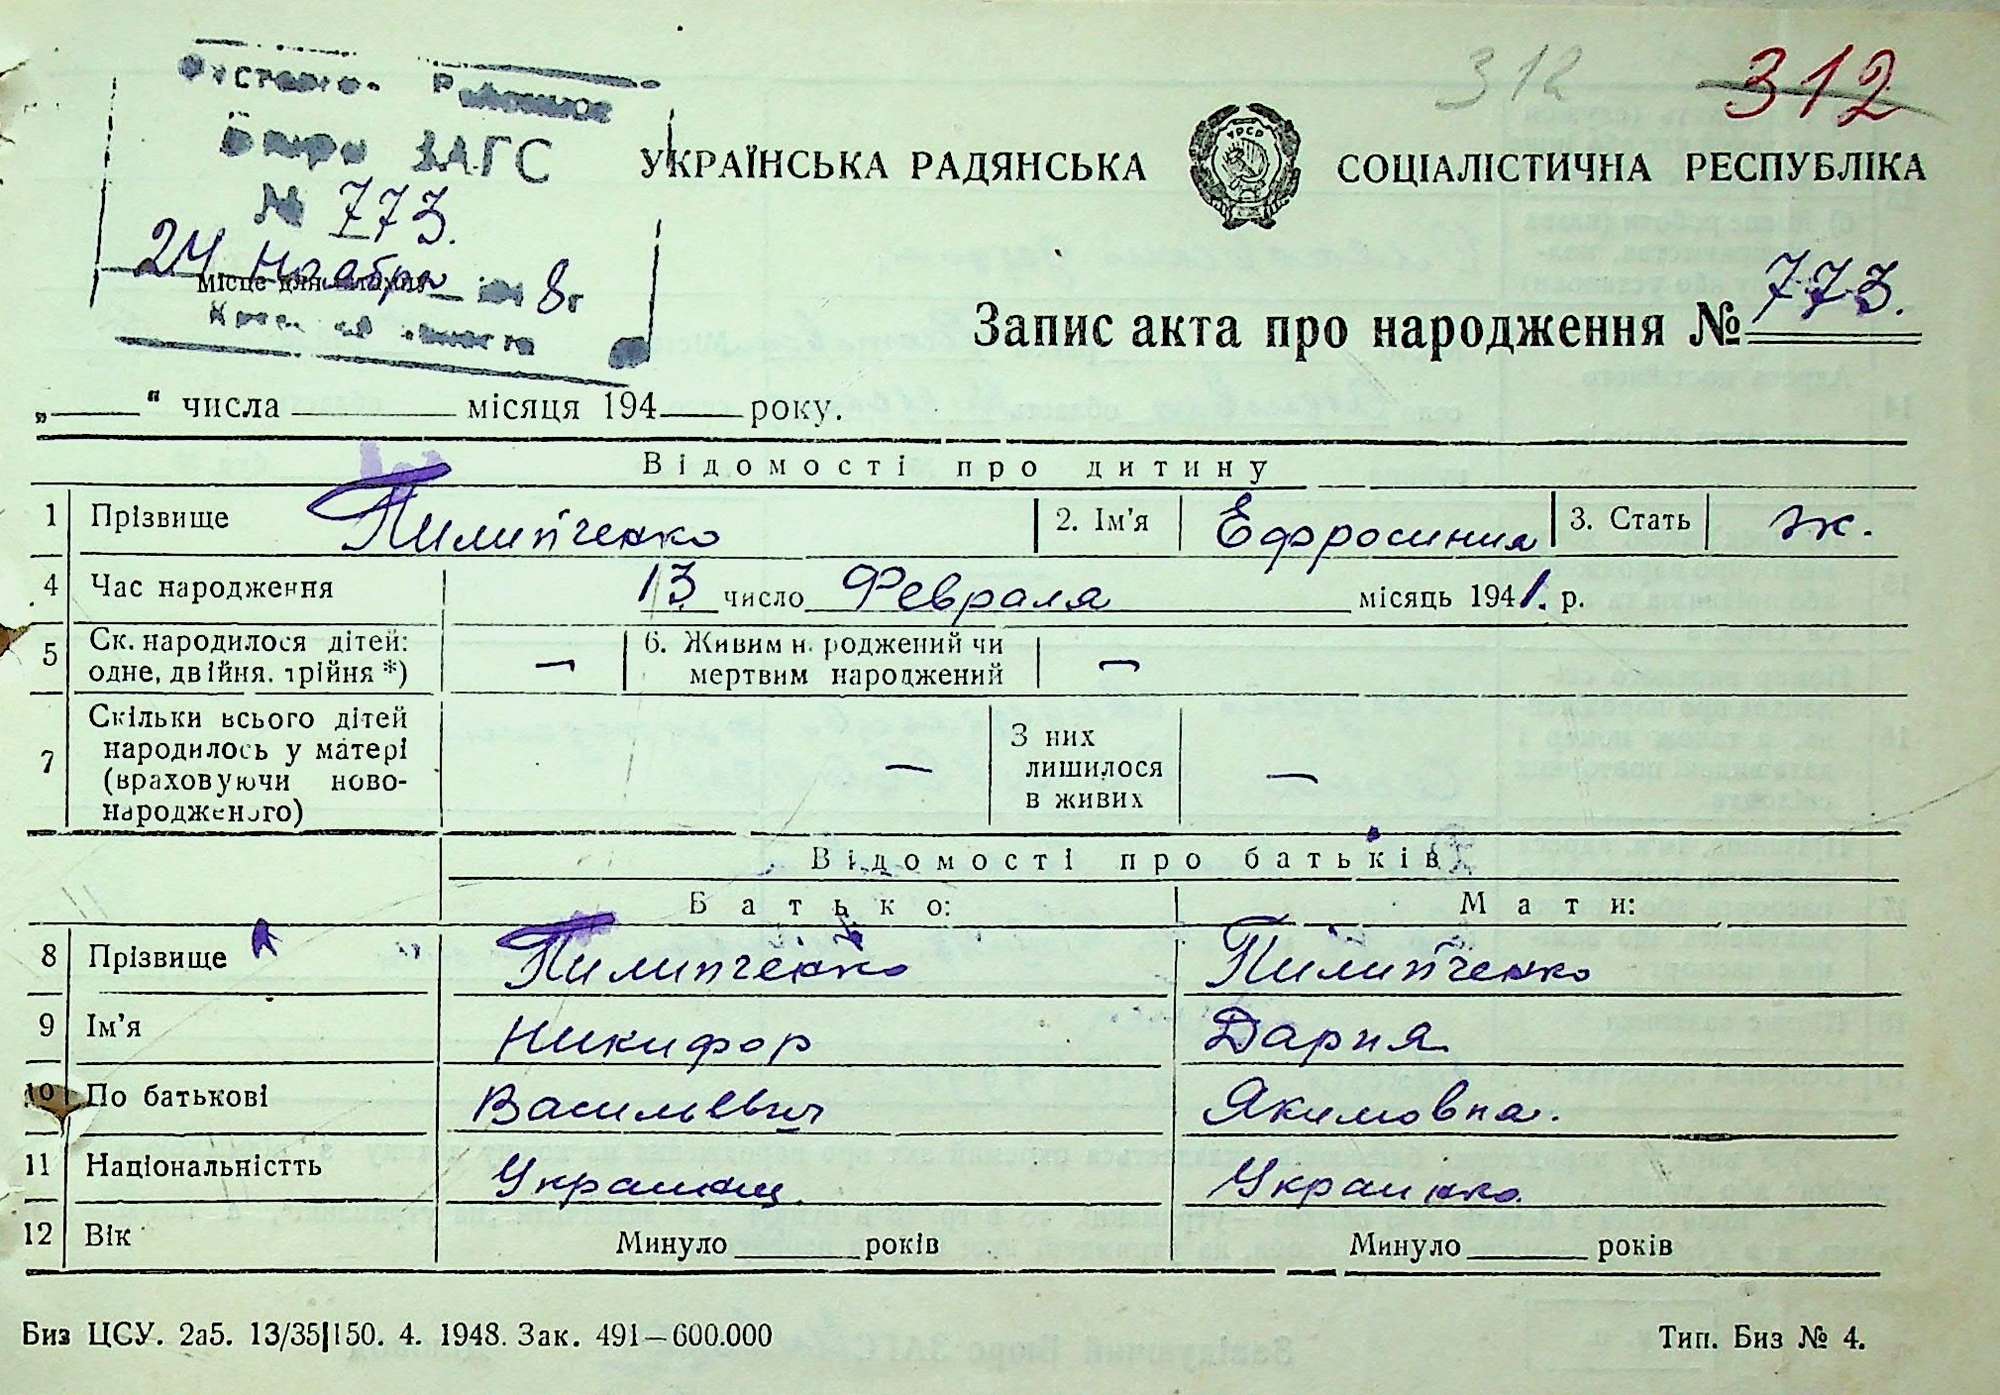 312 312
Районное
Бюро ЗАГС
№ 773.
24 Ноября 1948 г
УКРАЇНСЬКА РАДЯНСЬКА СОЦІАЛІСТИЧНА РЕСПУБЛІКА
УРСР
Місце для
Запис акта про народження № 773.
„____“ числа ____ місяця 194__ року.
Відомості про дитину
1 Прізвище Пилипченко 2. Ім'я Ефросиния 3. Стать ж.
4 Час народження 13 число Февраля місяць 1941. р.
5 Ск. народилося дітей: 6. Живим народжений чи
одне, двійня, трійня *) — мертвим народжений —
7 Скільки всього дітей
народилось у матері З них
(враховуючи ново- — лишилося —
народженого) в живих
Відомості про батьків
Батько: Мати:
8 Прізвище Пилипченко Пилипченко
9 Ім'я Никифор Дария
10 По батькові Васильевич Якимовна.
11 Національністть Украинец Украинка
12 Вік Минуло ____ років Минуло ____ років
Биз ЦСУ. 2а5. 13/35|150. 4. 1948. Зак. 491—600.000 Тип. Биз № 4.